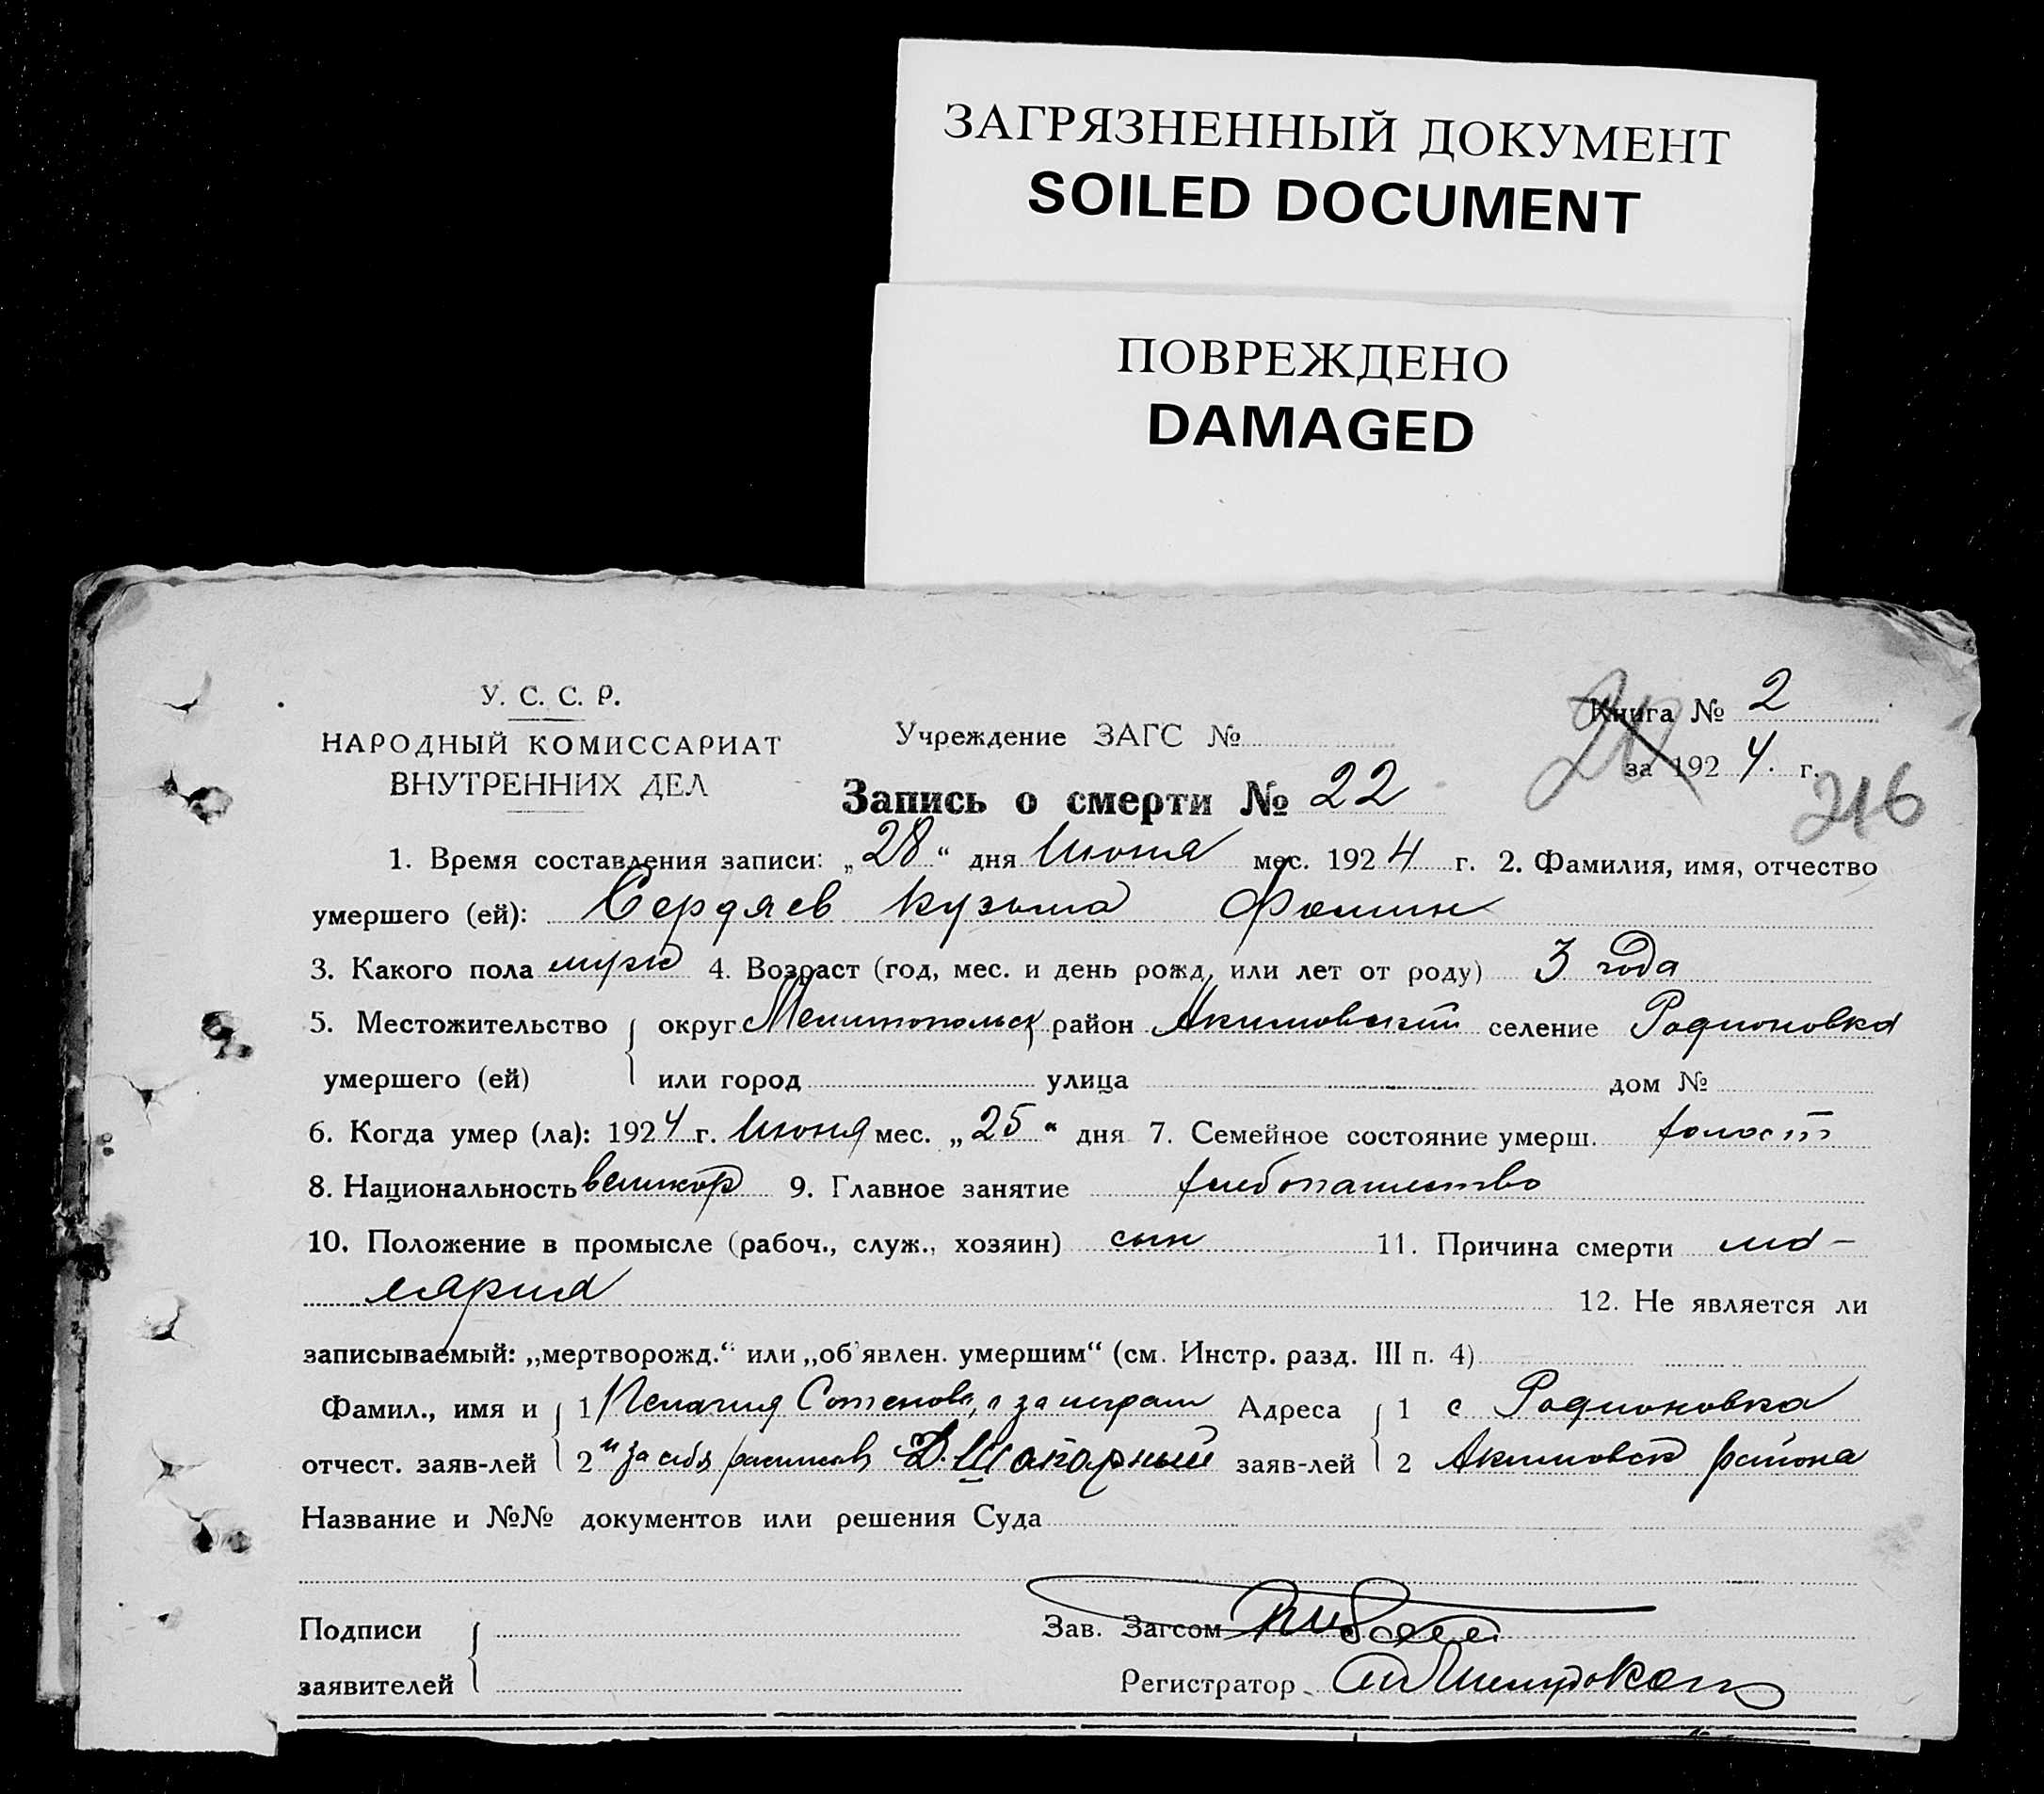 ЗАГРЯЗНЕННЫЙ ДОКУМЕНТ
SOILED DOCUMENT
ПОВРЕЖДЕНО
DAMAGED
У. С. С. Р.
НАРОДНЫЙ КОМИССАРИАТ
ВНУТРЕННИХ ДЕЛ
Учреждение ЗАГС №
Книга № 2
за 1924. г.
216
Запись о смерти № 22
1. Время составления записи: „28“ дня Июня мес. 1924 г. 2. Фамилия, имя, отчество
умершего (ей): Сердяев Кузьма Фомин
3. Какого пола мужс 4. Возраст (год, мес. и день рожд, или лет от роду) 3 года
5. Местожительство округ Мелитопольск район Акимовский селение Родионовка
умершего (ей) или город улица дом №
6. Когда умер (ла): 1924 г. Июня мес. „25“ дня 7. Семейное состояние умерш. холост
8. Национальность великор 9. Главное занятие хлебопашество
10. Положение в промысле (рабоч., служ., хозяин) сын 11. Причина смерти ма-
лярия
12. Не является ли
записываемый: „мертворожд.“ или „об'явлен. умершим“ (см. Инстр. разд. III п. 4)
Фамил., имя и 1 Пелагия Адреса 1 с Родионовка
отчест. заяв-лей 2 и за себя Д. Шапарный заяв-лей 2 Акимовск района
Название и №№ документов или решения Суда
Подписи
заявителей
Зав. Загсом
Регистратор